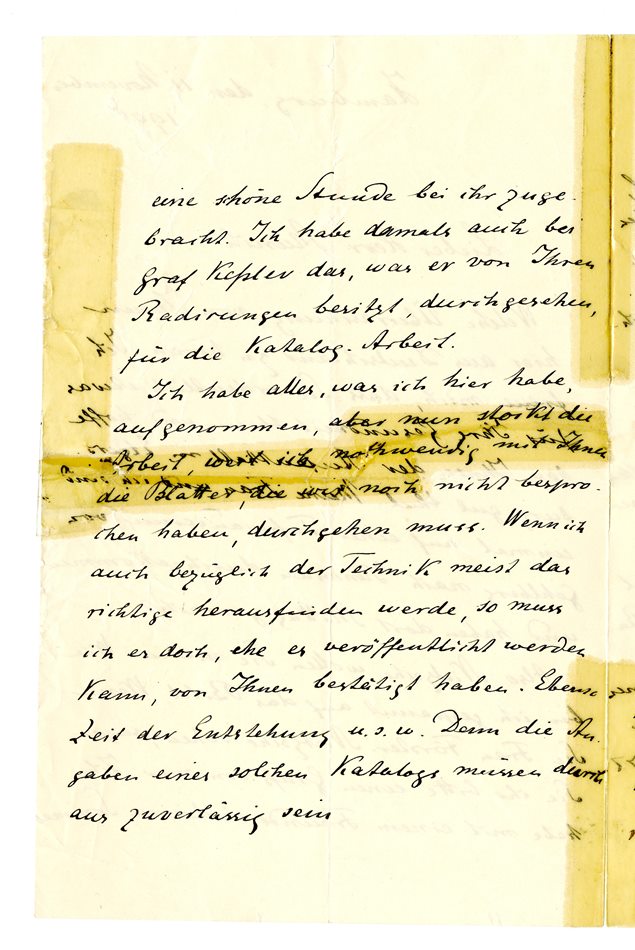 eine schöne Stunde bei ihr zuge-
bracht. Ich habe damals auch bei
Graf Keßler das, was er von Ihren
Radirungen besitzt, durchgesehen,
für die Katalog-Arbeit.
Ich habe alles, was ich hier habe,
aufgenommen, aber nun stockt die
Arbeit, weil ich nothwendig mit Ihnen
die Blätter, die wir noch nicht bespro-
chen haben, durchgehen muss. Wenn ich
auch bezüglich der Technik meist das
richtige herausfinden werde, so muss
ich es doch, ehe es veröffentlicht werden
kann, von Ihnen bestätigt haben. Ebenso
Zeit der Entstehung u.s.w. Denn die An-
gaben eines solchen Katalogs müssen durch
aus zuverlässig sein